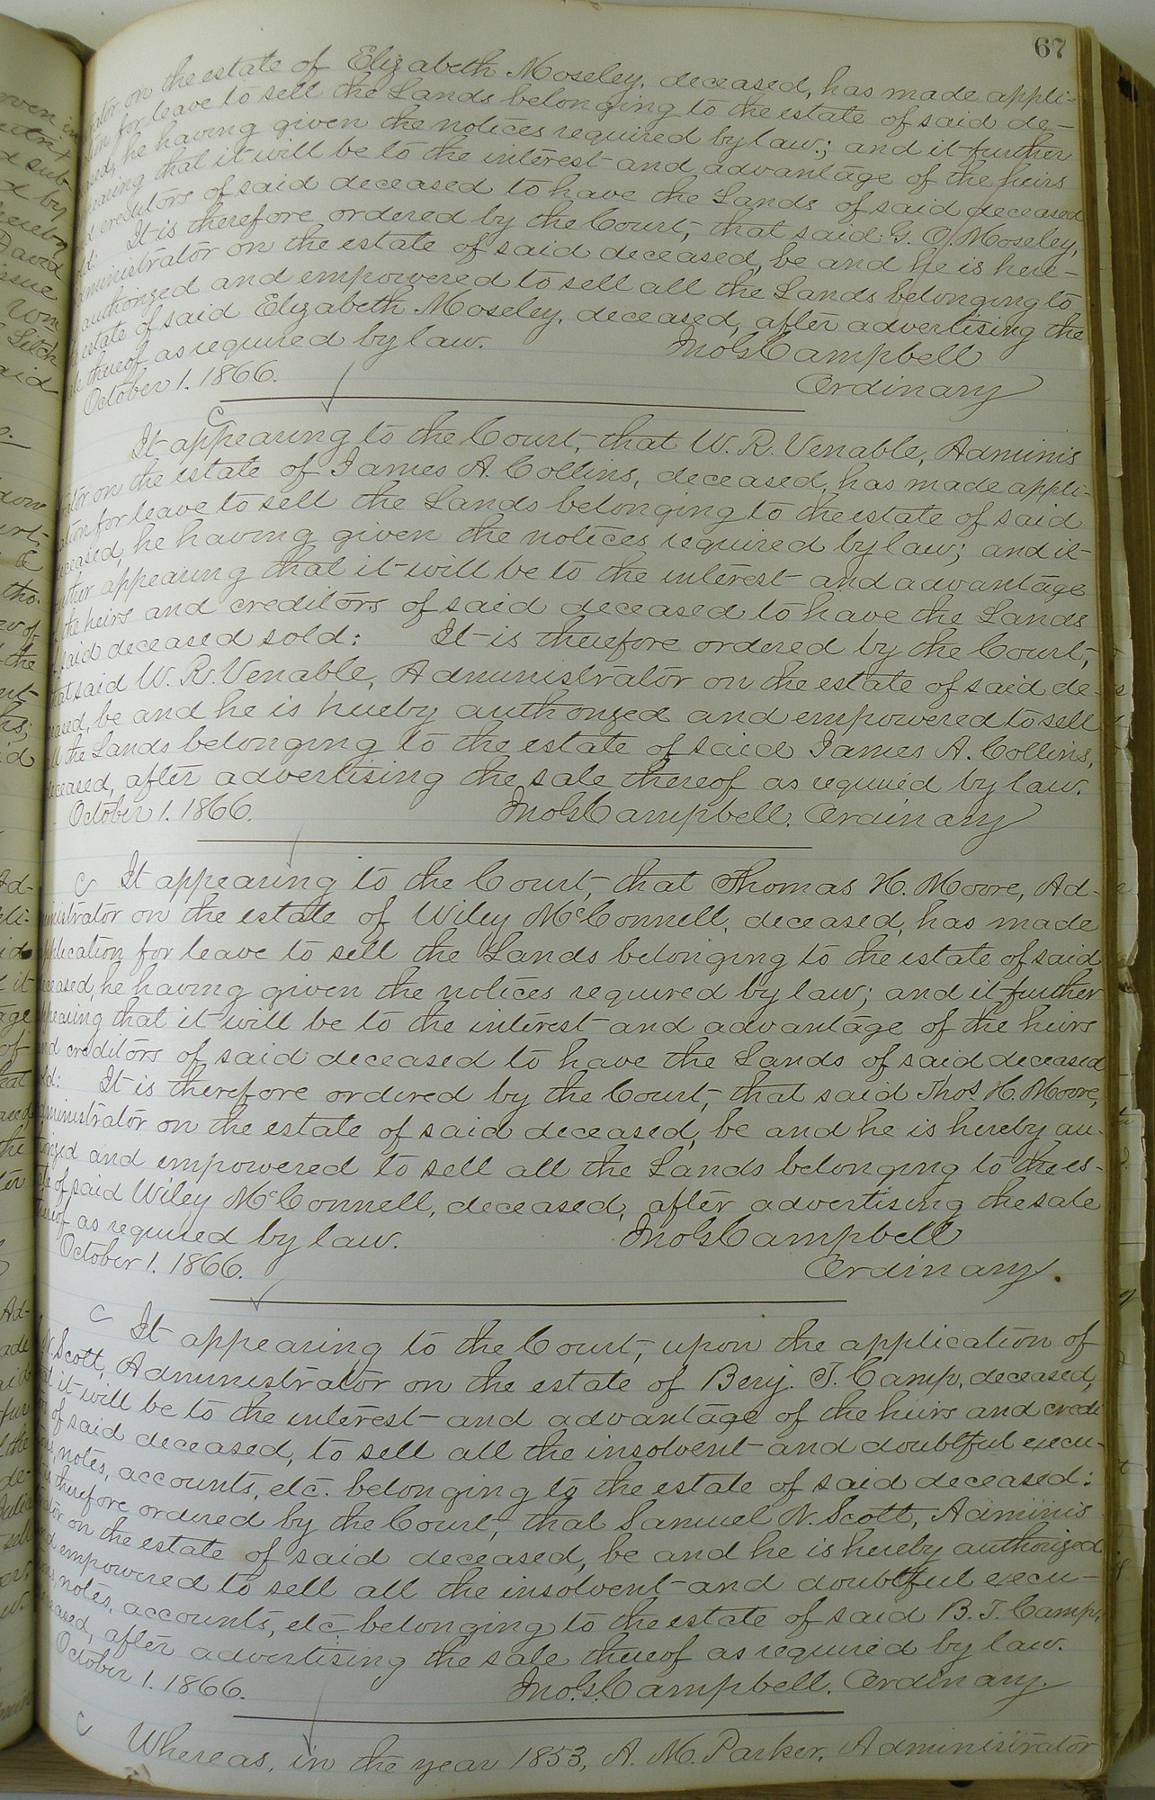 67
ator on the estate of Elizabeth Moseley, deceased, has made appli-
for leave to sell the Lands belonging to the estate of said de-
he having given the notices required by law; and it further
earing that it will be to the interest and advantage of the heirs
creditors of said deceased to have the Lands of said deceased
ld: It is therefore ordered by the Court, that said G. O. Moseley,
ministrator on the estate of said deceased, be and he is here-
authorized and empowered to sell all the Lands belonging to
estate of said Elizabeth Moseley, deceased, after advertising the
thereof as required by law. Jno G Campbell
October 1. 1866. Ordinary
C It appearing to the Court, that W. R. Venable, Adminis
ator on the estate of James A. Collins, deceased, has made appli-
ation for leave to sell the Lands belonging to the estate of said
eceased, he having given the notices required by law; and it
urther appearing that it will be to the interest and advantage
the heirs and creditors of said deceased to have the Lands
said deceased sold: It is therefore ordered by the Court,
that said W. R. Venable, Administrator on the estate of said de-
ceased, be and he is hereby authorized and empowered to sell
all the Lands belonging to the estate of said James A. Collins,
deceased, after advertising the sale thereof as required by law.
October 1. 1866. Jno G Campbell. Ordinary
C It appearing to the Court, that Thomas H. Moore, Ad-
ministrator on the estate of Wiley McConnell, deceased, has made
pplication for leave to sell the Lands belonging to the estate of said
eceased, he having given the notices required by law; and it further
ppearing that it will be to the interest and advantage of the heirs
nd creditors of said deceased to have the Lands of said deceased
ld: It is therefore ordered by the Court, that said Thos. H. Moore,
dministrator on the estate of said deceased, be and he is hereby au-
orized and empowered to sell all the Lands belonging to the es-
te of said Wiley McConnell, deceased, after advertising the sale
hereof as required by law. Jno G Campbell
October 1. 1866. Ordinary.
C It appearing to the Court, upon the application of
N. Scott, Administrator on the estate of Benj. T. Camp, deceased,
it will be to the interest and advantage of the heirs and credi
of said deceased, to sell all the insolvent and doubtful execu-
notes, accounts, etc. belonging to the estate of said deceased:
therefore ordered by the Court, that Samuel N. Scott, Adminis
ator on the estate of said deceased, be and he is hereby authorized
empowered to sell all the insolvent and doubtful execu-
notes, accounts, etc belonging to the estate of said B. T. Camp,
eceased, after advertising the sale thereof as required by law.
October 1. 1866. Jno. G. Campbell. Ordinary.
C Whereas, in the year 1853, A. M. Parker, Administrator